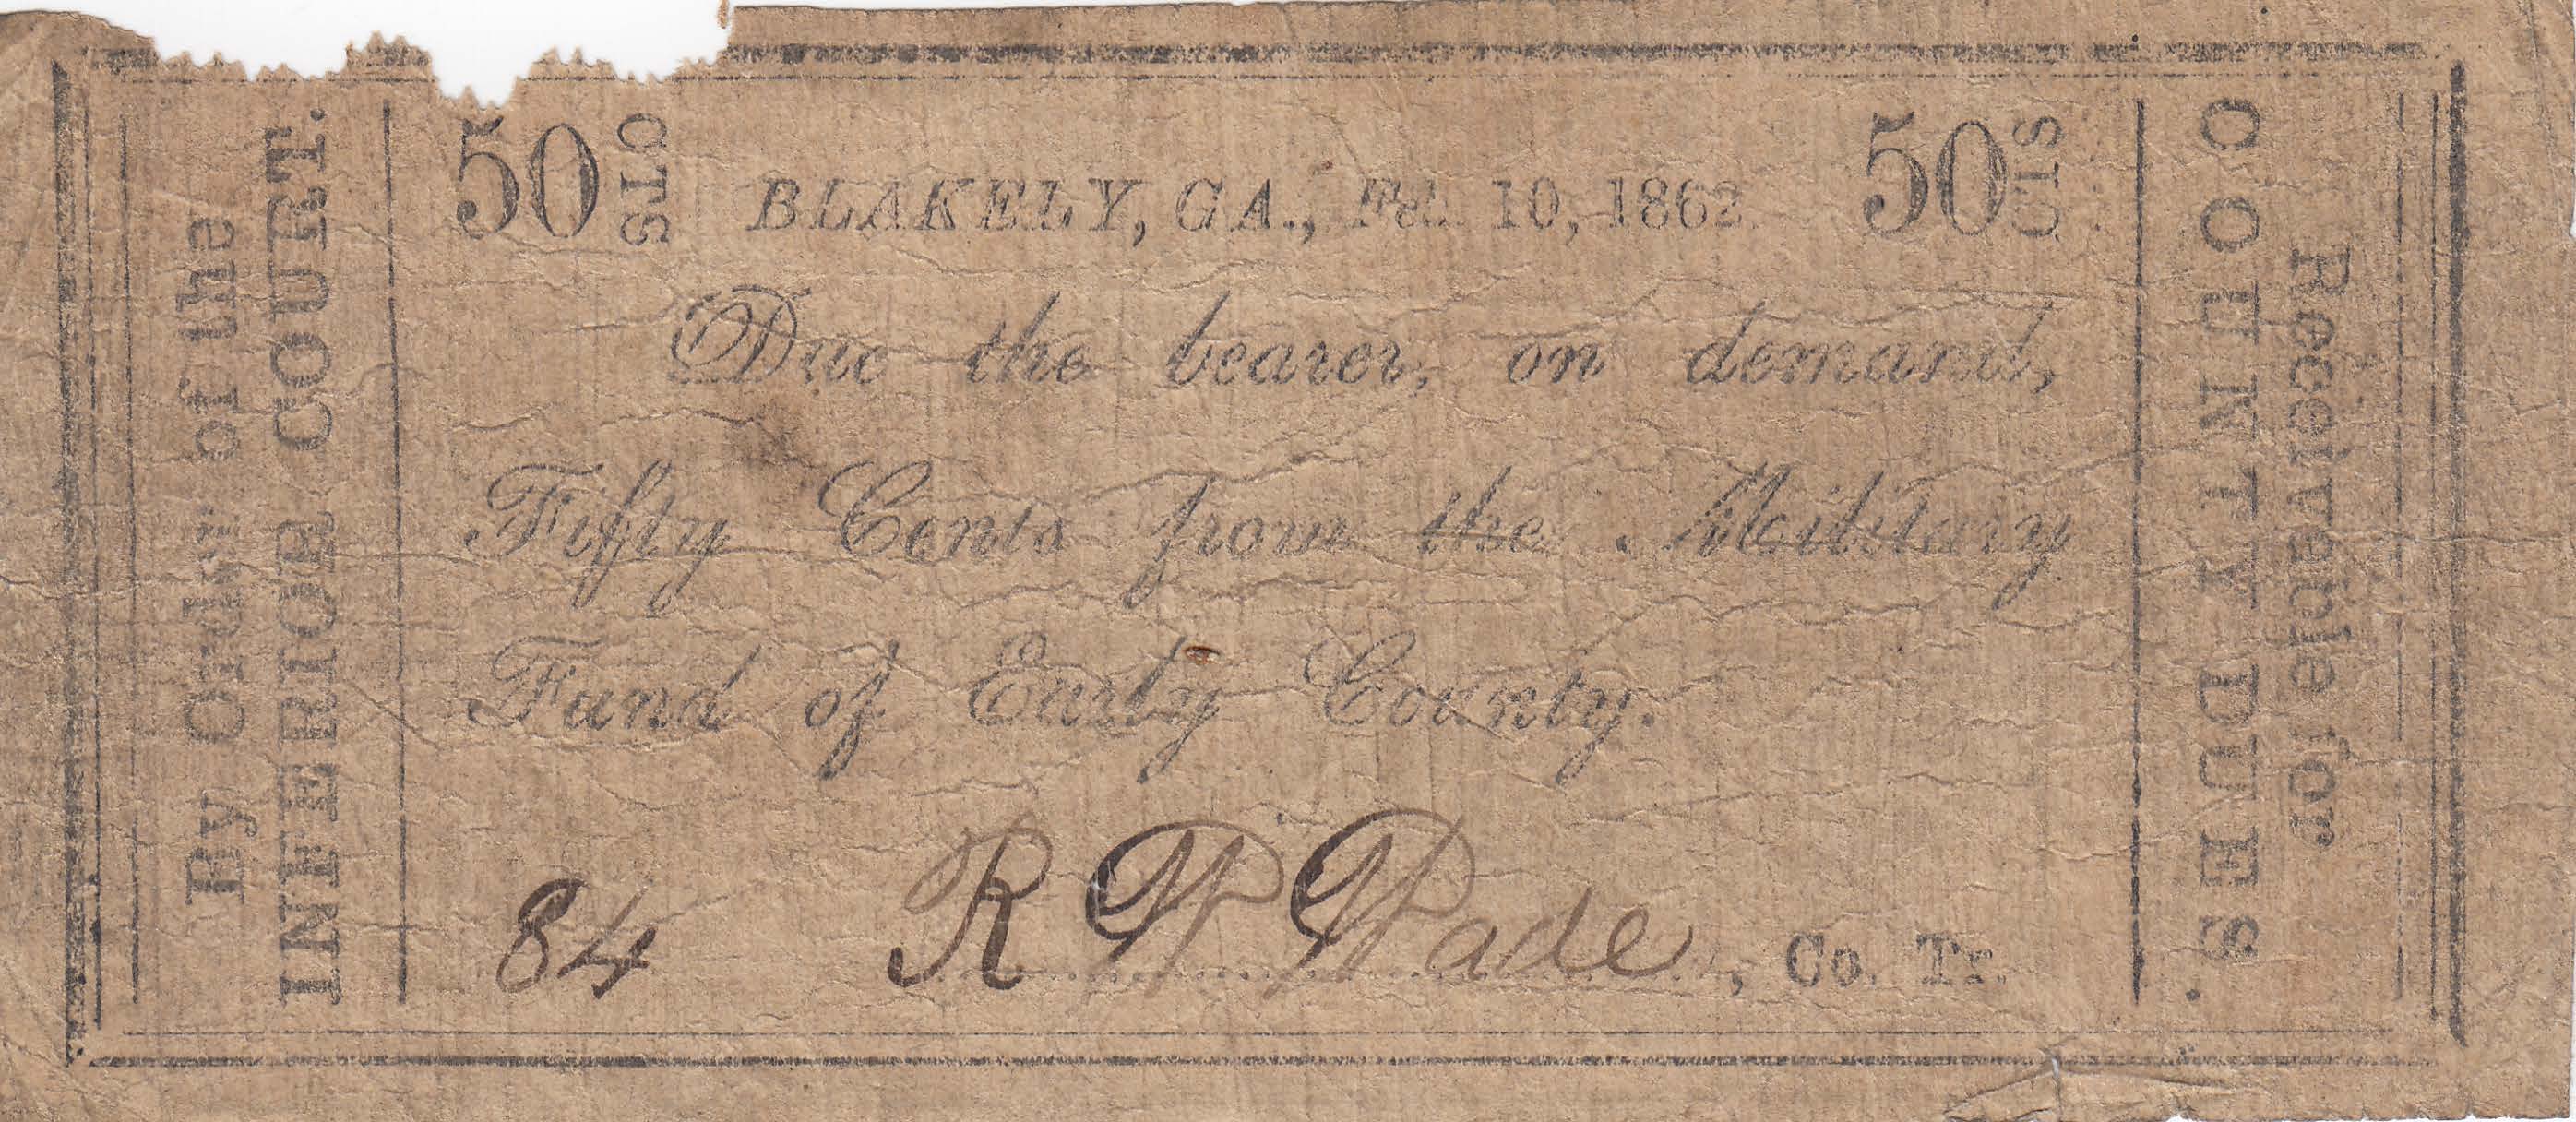 By Order of the
INFERIOR COURT.
50 CTS
BLAKELY, GA., Feb. 10, 1862
50 CTS
Due the bearer, on demand,
Fifty Cents from the Military
Fund of Early County.
84
R W Wade, Co. Tr.
Receivable for
COUNTY DUES.